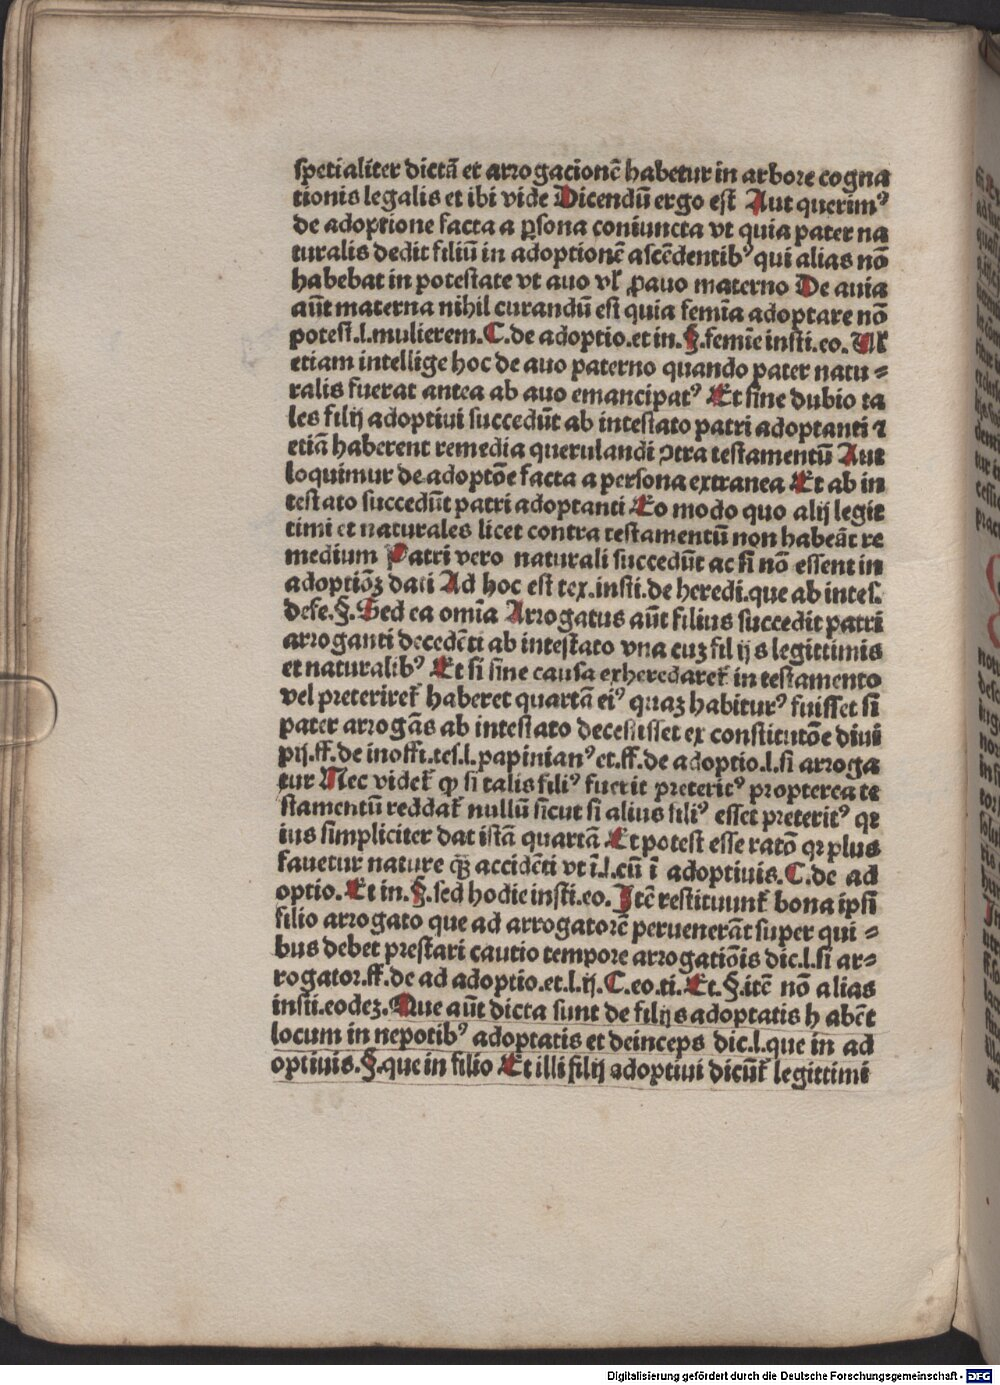 spetialiter dictã et arrogacionẽ habetur in arbore cogna
tionis legalis et ibi vide Dicendũ ergo est Aut querimꝰ
de adoptione facta a ꝑsona coniuncta vt quia pater na
turalis dedit filiũ in adoptionẽ ascẽdentibꝰ qui alias nõ
habebat in potestate vt auo vł ꝓauo materno De auia
aũt materna nihil curandũ est quia femĩa adoptare nõ
potest.l.mulierem.C.de adoptio.et in.§.femĩe insti.eo.Vł
etiam intellige hoc de auo paterno quando pater natu⸗
ralis fuerat antea ab auo emancipatꝰ Et sine dubio ta
les filij adoptiui succedũt ab intestato patri adoptanti ⁊
etiã haberent remedia querulandi ꝯtra testamentũ Aut
loquimur de adoptõe facta a persona extranea Et ab in
testato succedũt patri adoptanti Eo modo quo alij legit
timi et naturales licet contra testamentũ non habeãt re
medium Patri vero naturali succedũt ac si nõ essent in
adoptiõꝫ dati Ad hoc est tex.insti.de heredi.que ab intes.
defe.§.Sed ea omĩa Arrogatus aũt filius succedit patri
arroganti decedẽti ab intestato vna cuꝫ filijs legittimis
et naturalibꝰ Et si sine causa exheredaret̃ in testamento
vel preteriret̃ haberet quartã eiꝰ quaꝫ habiturꝰ fuisset si
pater arrogãs ab intestato decessisset ex constitutõe diui
pij.ff.de inoffi.tes.l.papinianꝰ et.ff.de adoptio.l.si arroga
tur Nec videt̃ ꝙ si talis filiꝰ fuerit preteritꝰ propterea te
stamentũ reddat̃ nullũ sicut si alius filiꝰ esset preteritꝰ qꝛ
ius simpliciter dat istã quartã Et potest esse ratõ qꝛ plus
fauetur nature q̃ꝫ accidẽti vt ĩ.l.cũ ĩ adoptiuis.C.de ad
optio.Et in.§.sed hodie insti.eo.Itẽ restituunt̃ bona ipsi
filio arrogato que ad arrogatorẽ peruenerãt super qui⸗
bus debet prestari cautio tempore arrogatiõis dic.l.si ar⸗
rogator.ff.de ad adoptio.et.l.ij.C.eo.ti.Et.§.itẽ nõ alias
insti.eodeꝫ.Que aũt dicta sunt de filijs adoptatis habẽt
locum in nepotibꝰ adoptatis et deinceps dic.l.que in ad
optiuis.§.que in filio Et illi filij adoptiui dicũt̃ legittimi
Digitalisierung gefördert durch die Deutsche Forschungsgemeinschaft - DFG